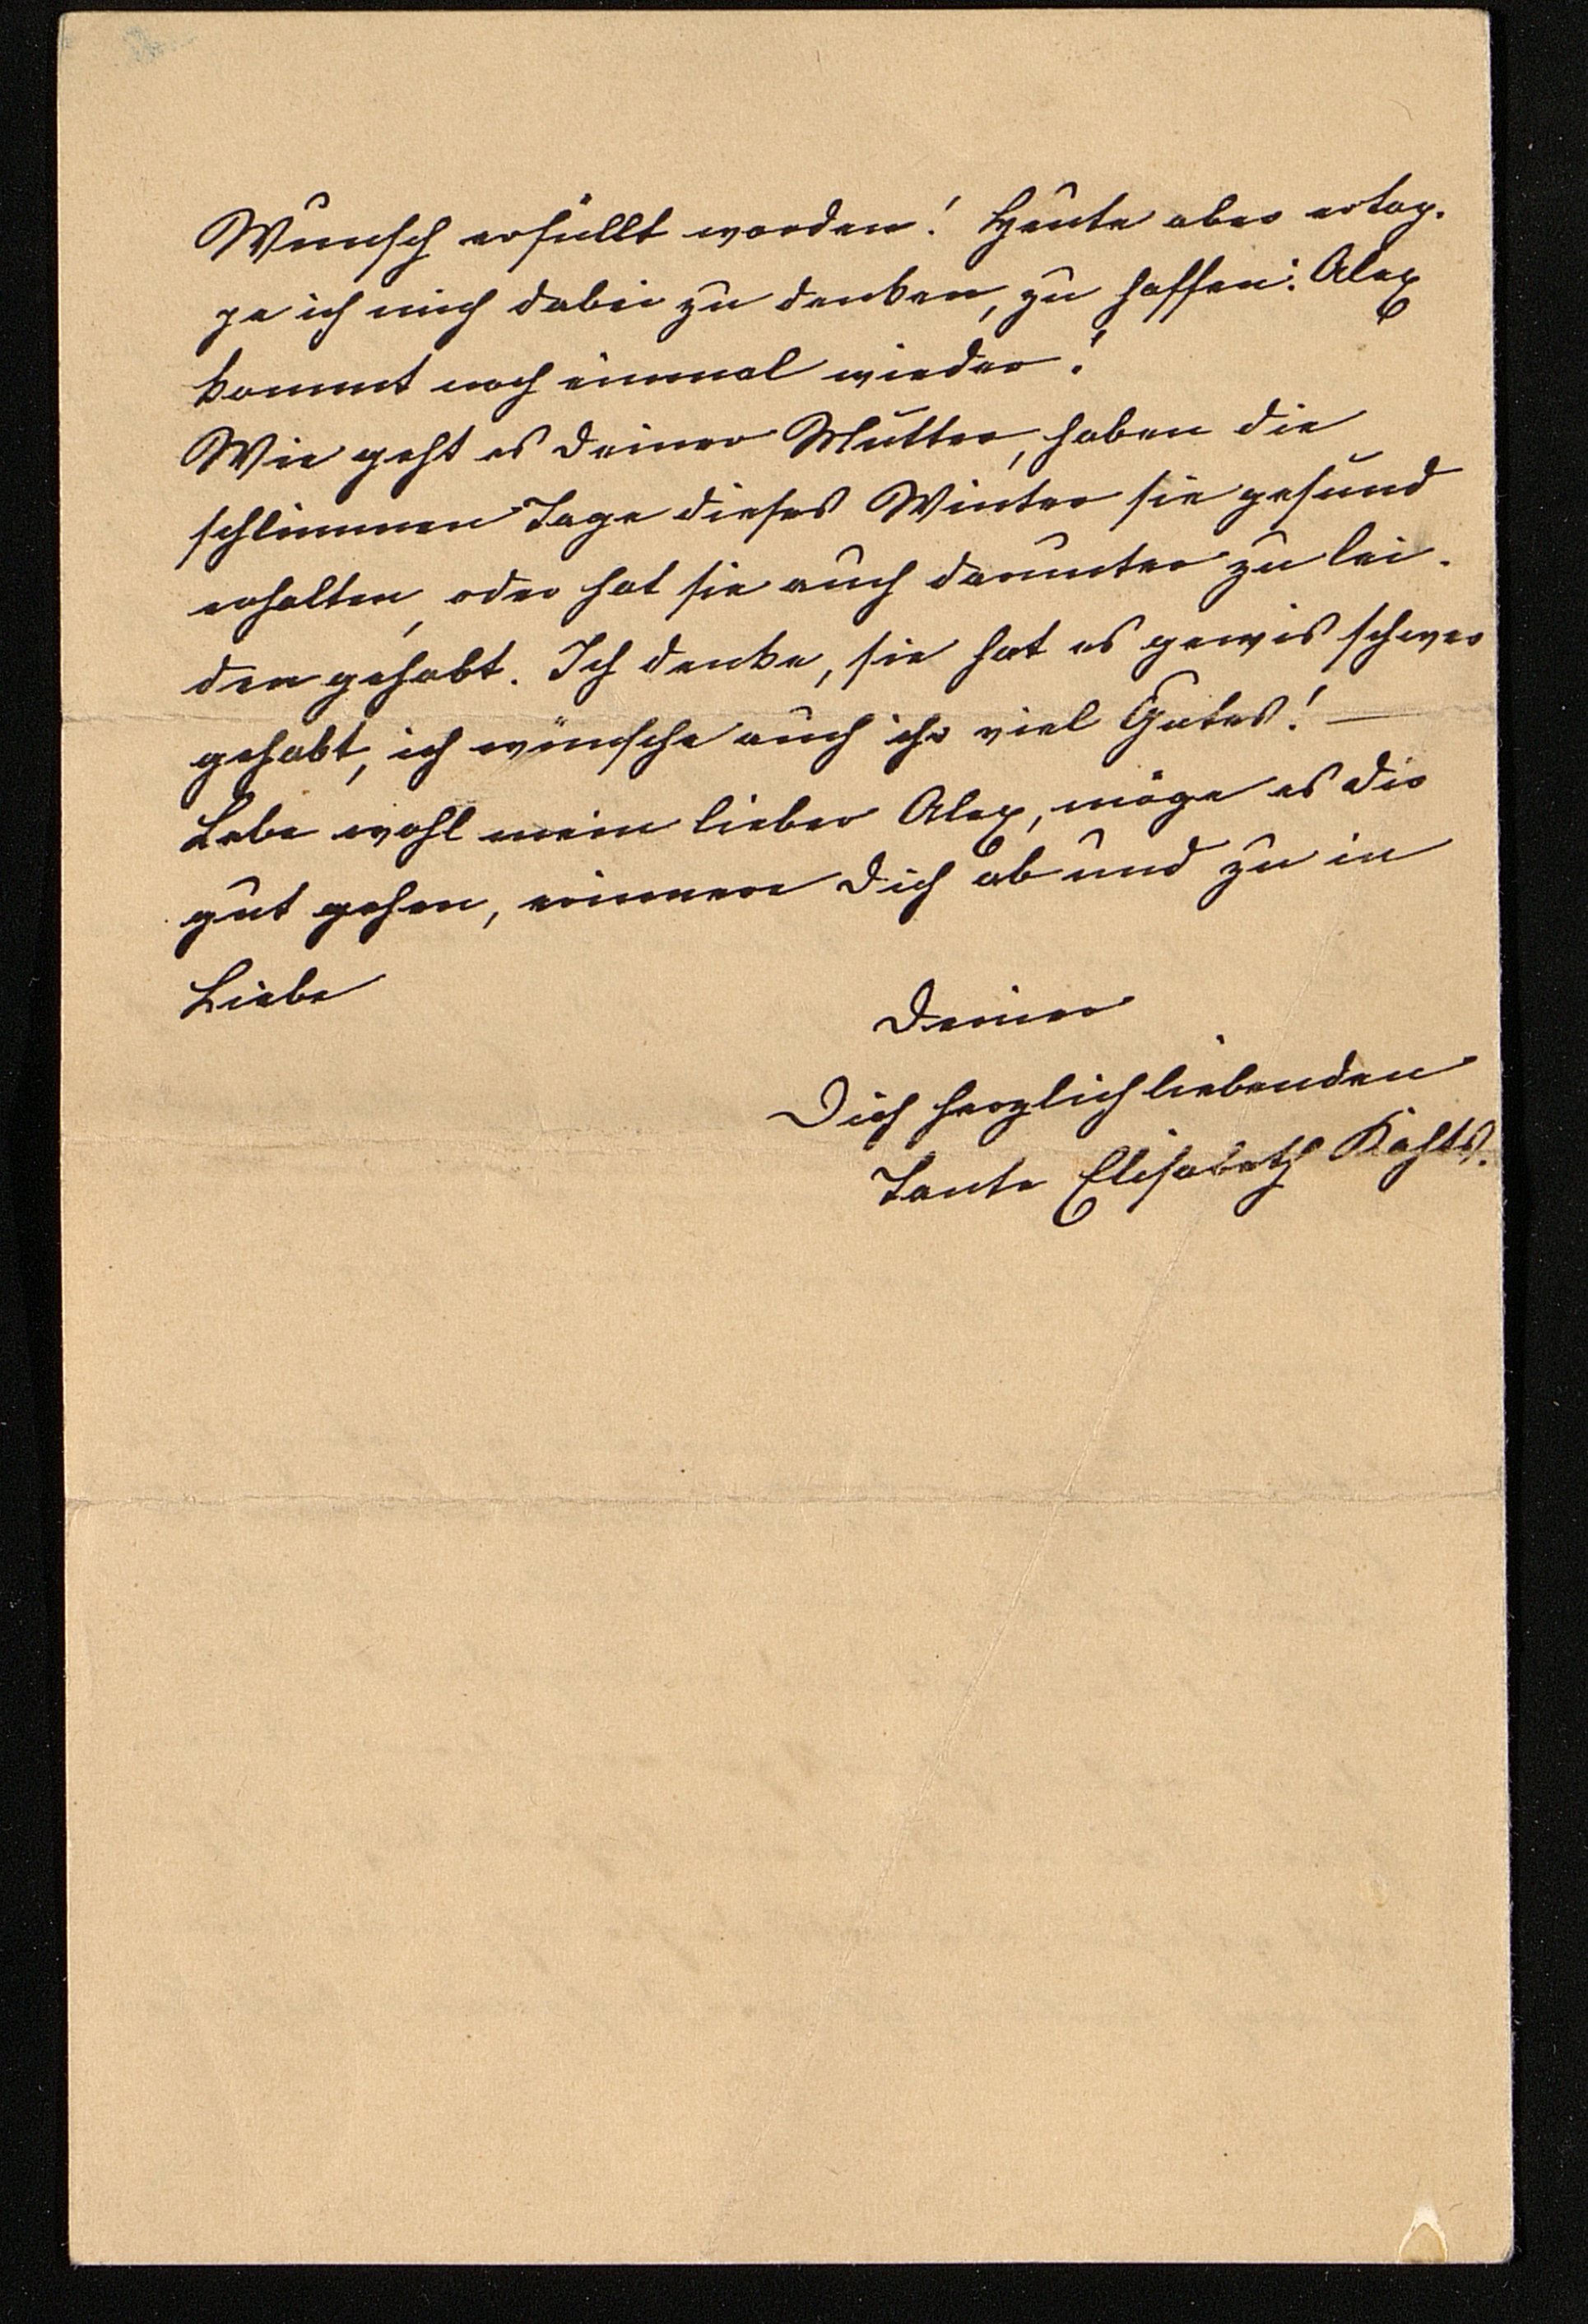 Wunsch erfüllt worden! Heute aber ertap-
pe ich mich dabei zu denken, zu hoffen: Alex
kommt noch einmal wieder!
Wie geht es Deiner Mutter, haben die
schlimmen Tage dieses Winter sie gesund
erhalten, oder hat sie auch darunter zu lei-
den gehabt. Ich denke, sie hat es gewis schwer
gehabt, ich wünsche auch ihr viel Gutes! —
Lebe wohl mein lieber Alex, möge es dir
gut gehen, erinnere Dich ab und zu in
Liebe
Deiner
Dich herzlich liebenden
Tante Elisabeth